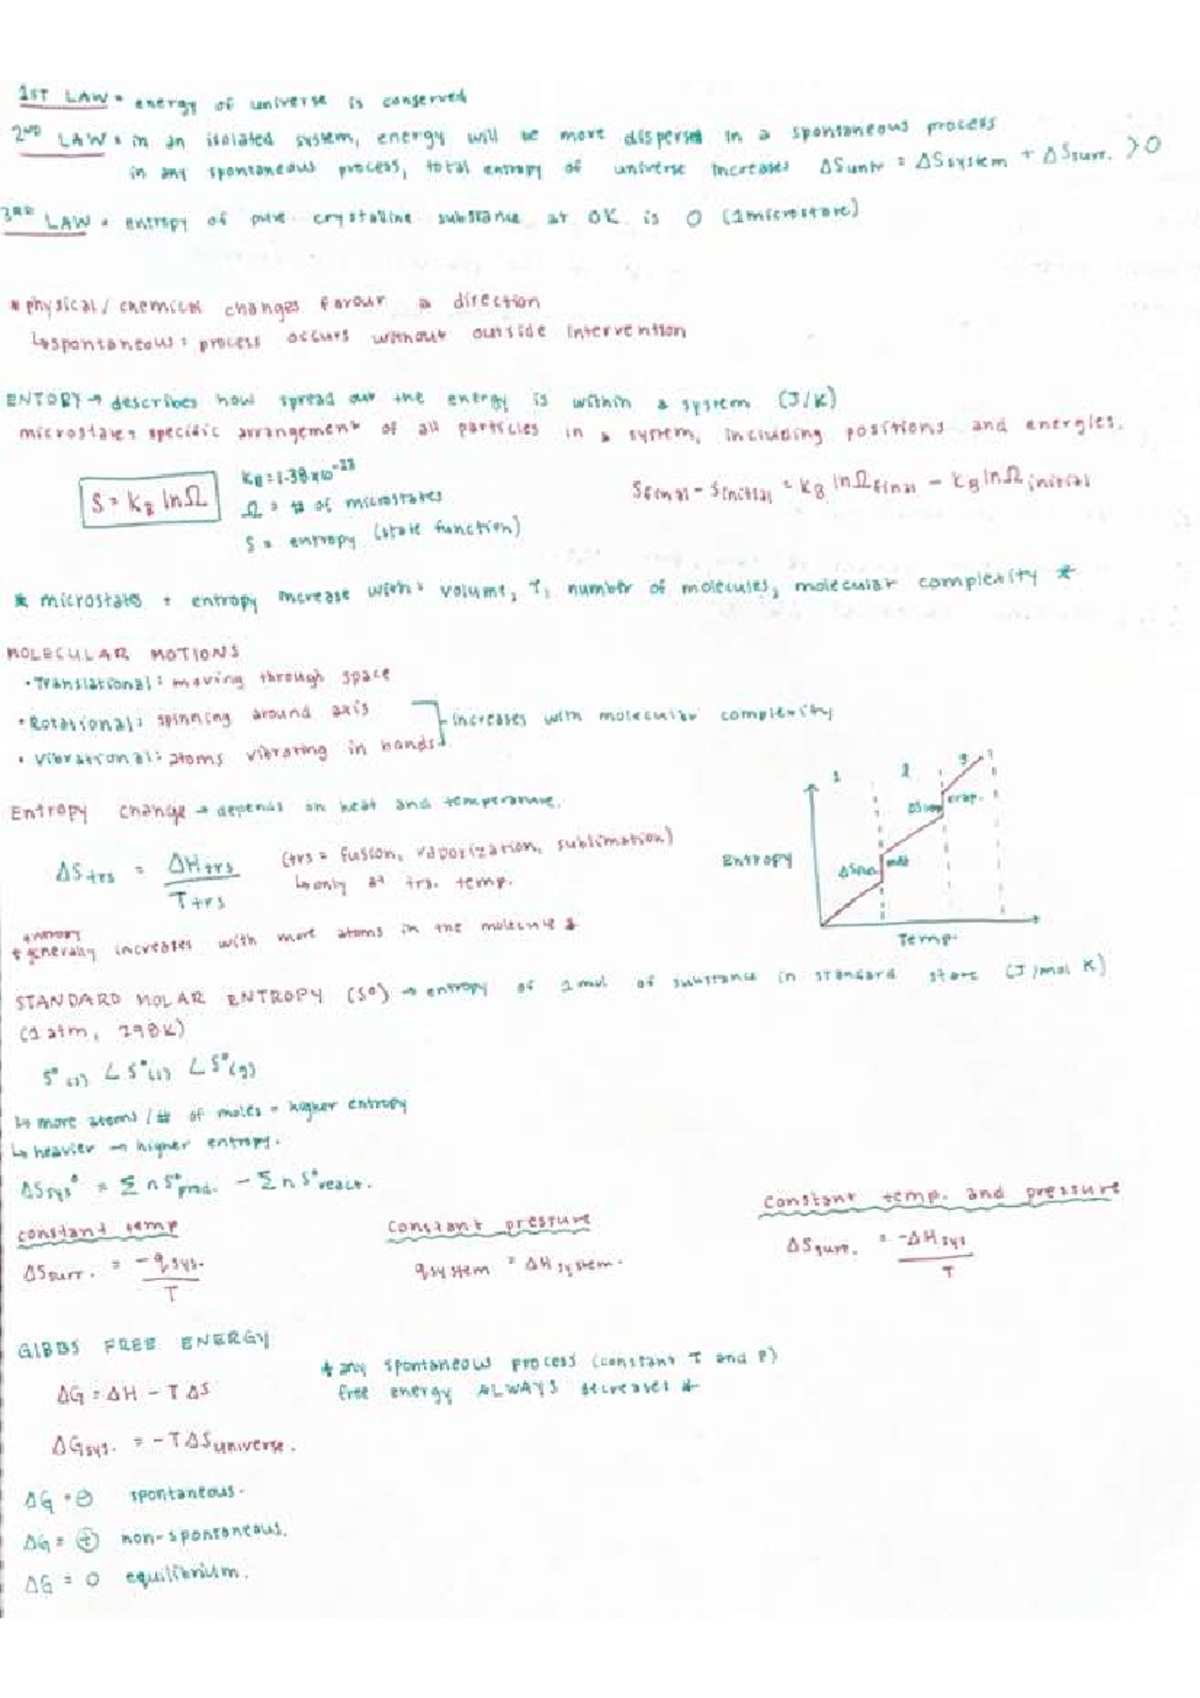 1ST LAW = energy of universe is conserved
2ND LAW = in an isolated system, energy will be more dispersed in a spontaneous process
in any spontaneous process, total entropy of universe increases ΔSuniv = ΔSsystem + ΔSsurr. > 0
3RD LAW = entropy of pure crystalline substance at 0K is 0 (1 microstate)
* physical / chemical changes favour a direction
↳ spontaneous: process occurs without outside intervention
ENTOPY → describes how spread out the energy is within a system (J/K)
microstate = specific arrangement of all particles in a system, including positions and energies.
S = KB lnΩ
KB = 1.38 x10⁻²³
Ω = # of microstates
S = entropy (state function)
Sfinal - Sinitial = kB lnΩfinal - kB lnΩinitial
* microstates + entropy increase with: volume, T, number of molecules, molecular complexity *
MOLECULAR MOTIONS
• Translational: moving through space
• Rotational: spinning around axis
• Vibrational: atoms vibrating in bonds
increases with molecular complexity
Entropy change → depends on heat and temperature.
ΔStrs = ΔHtrs / Ttrs
(trs = fusion, vaporization, sublimation)
↳ only at trs. temp.
s l g
evap.
ΔSfus. melt
Entropy
Temp.
entropy
* generally increases with more atoms in the molecule *
STANDARD MOLAR ENTROPY (S°) → entropy of 1 mol of substance in standard state (J/mol K)
(1 atm, 298K)
S°(s) < S°(l) < S°(g)
↳ more atoms / # of moles = higher entropy
↳ heavier → higher entropy.
ΔSsys° = Σ n S°prod. - Σ n S°react.
constant temp
ΔSsurr. = -qsys. / T
constant pressure
qsystem = ΔHsystem.
constant temp. and pressure
ΔSsurr. = -ΔHsys / T
GIBBS FREE ENERGY
ΔG = ΔH - TΔS
* any spontaneous process (constant T and P)
free energy ALWAYS decreases *
ΔGsys. = -TΔSuniverse.
ΔG = ⊖ spontaneous.
ΔG = ⊕ non-spontaneous.
ΔG = 0 equilibrium.